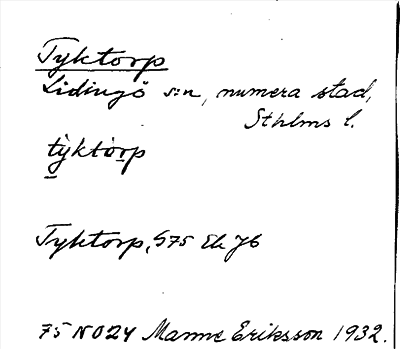 Tyktorp
Lidingö s:n, numera stad,
Sthlms l.
tỳktòrp
Tyktorp, G75 Ek J6
75 NO24 Manne Eriksson 1932.